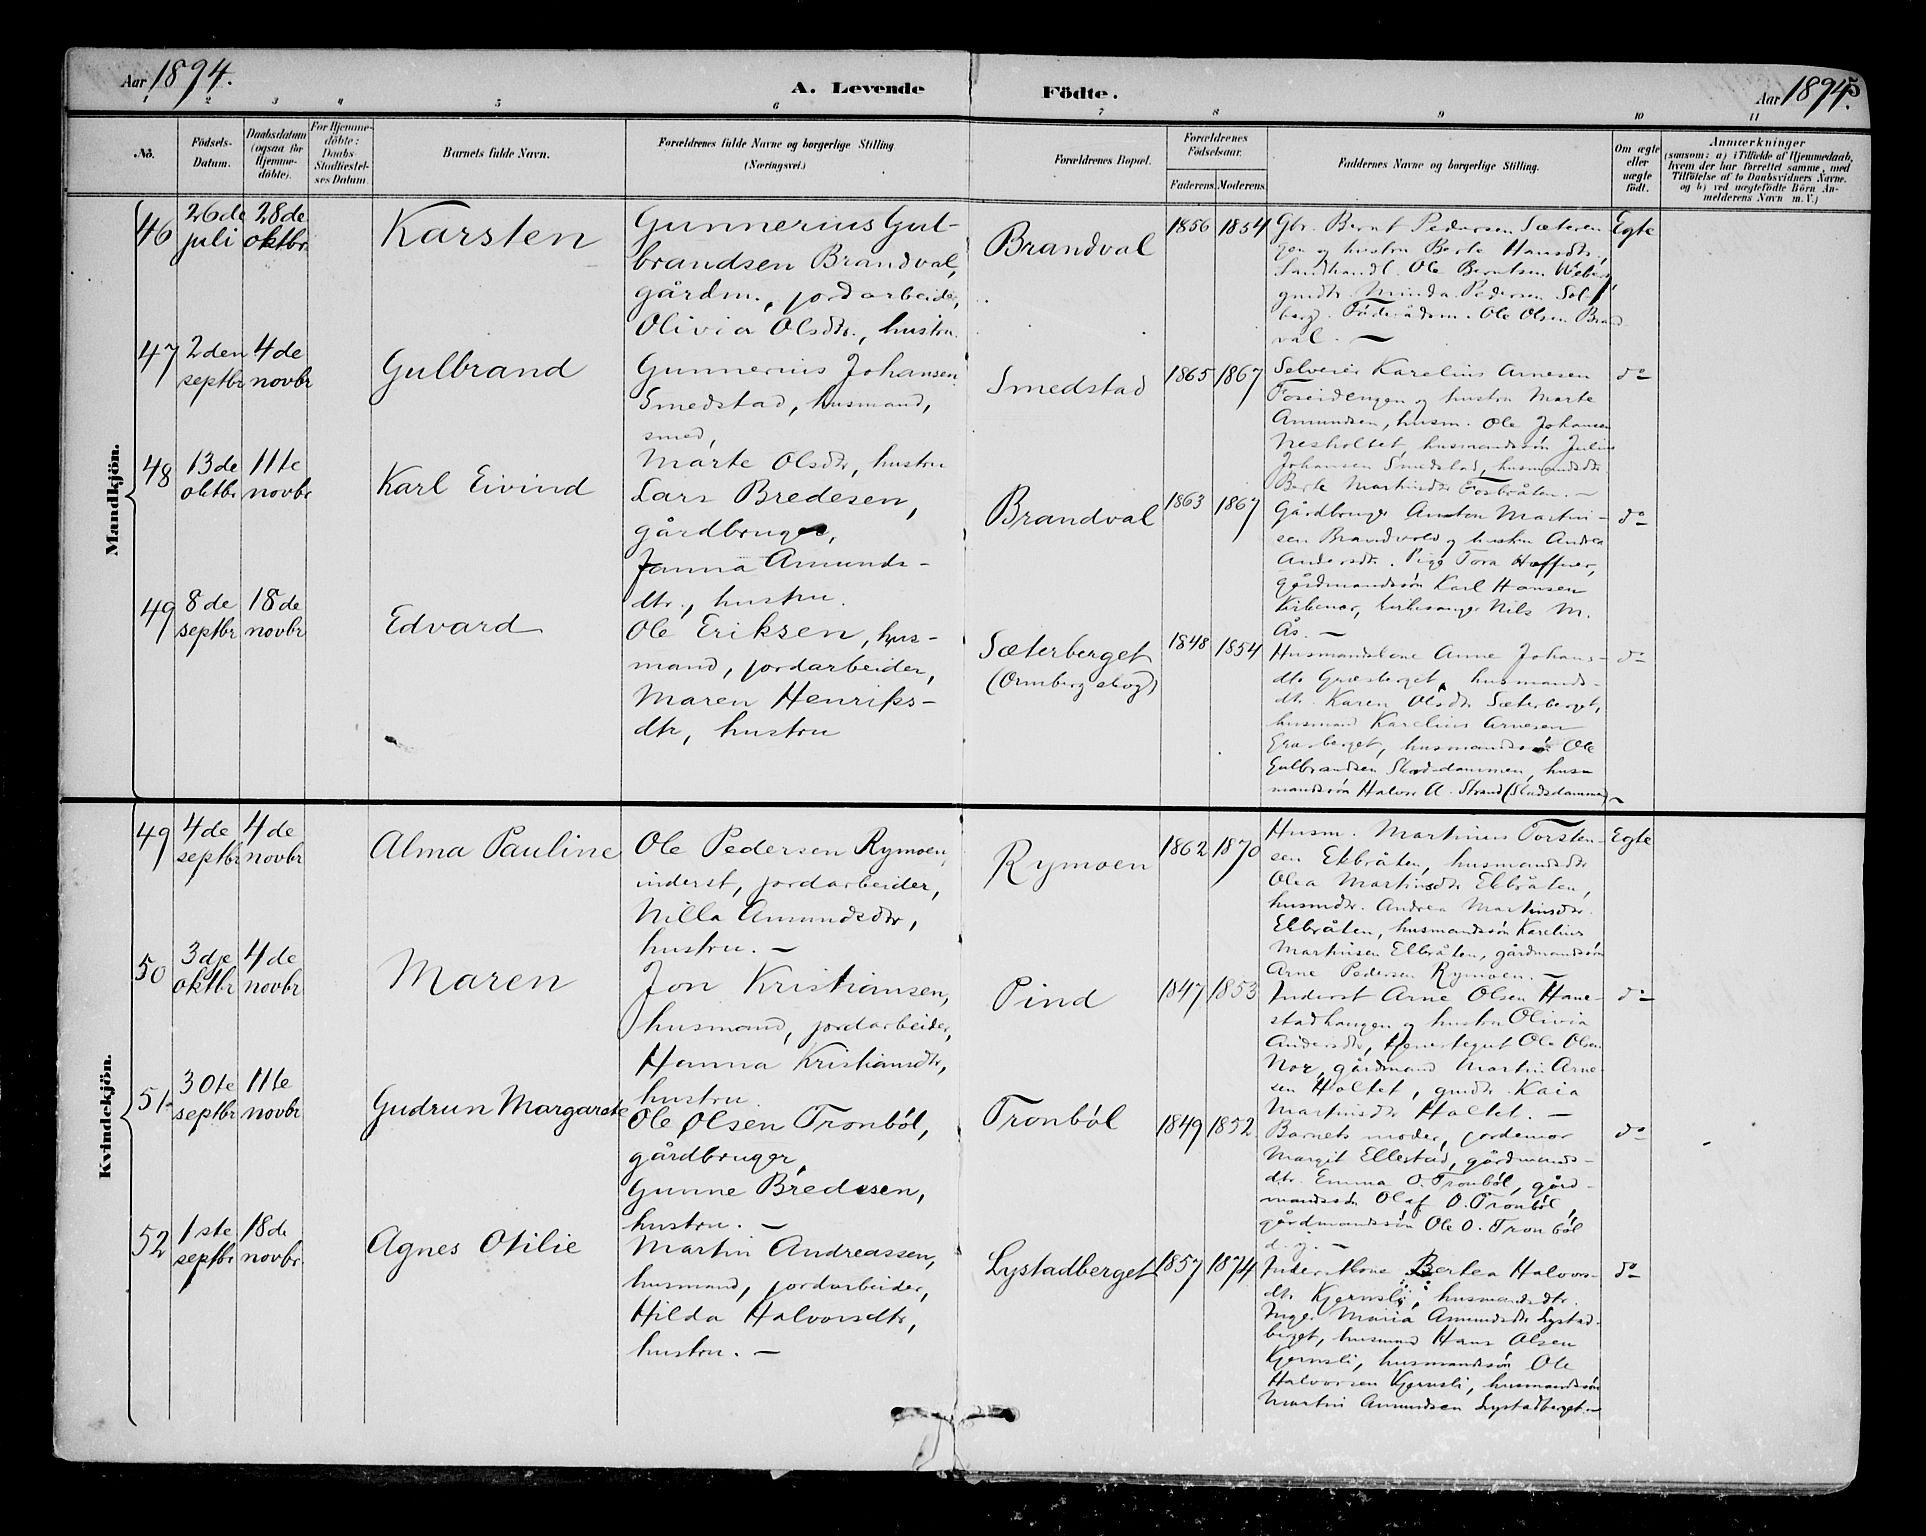 Aar 1894.
A. Levende Födte.
Aar 1894.
5
1 2 3 4 5 6 7 8 9 10 11
No.
Födsels-Datum.
Daabsdatum (ogsaa for Hjemme-döbte).
For Hjemme-döbte: Daabs-Stadfæstel-ses Datum.
Barnets fulde Navn.
Forældrenes fulde Navne og borgerlige Stilling (Næringsvei.)
Forældrenes Bopæl.
Forældrenes Födselsaar.
Faderens. Moderens.
Faddernes Navne og borgerlige Stilling.
Om ægte eller uægte födt.
Anmærkninger
(saasom: a) i Tilfælde af Hjemmedaab,
hvem der har forrettet samme, med
Tilföielse af to Daabsvidners Navne.
og b) ved uægtefödte Börn An-
melderens Navn m. V.)
Mandkjön.
46
26de juli
28de oktbr
Karsten
Gunnerius Gul-
brandsen Brandval,
gårdm., jordarbeider,
Olivia Olsdtr., hustru
Brandval
1856 1854
Gbr. Bernt Pedersen Sæteren-
gen og hustru Berte Hansdtr.,
Landhandl. Ole Berntsen
gmdtr. Minda Pedersen Sol-
berg. Föderådsm. Ole Olsen Brand-
val. —
Egte
47
2den septbr
4de novbr
Gulbrand
Gunnerius Johansen
Smedstad, husmand,
smed,
Marte Olsdtr, hustru
Smedstad
1865 1867
Selveier Karelius Arnesen
Foseidengen og hustru Marte
Amundsen, husm. Ole Johansen
Nesholtet, husmandssön Julius
Johansen Smedstad, husmandsdtr
Berte Martinsdtr Fosbråten. —
do
48
13de oktbr
11te novbr
Karl Eivind
Lars Bredesen,
gårdbruger,
Janna Amunds-
dtr., hustru.
Brandval
1863 1867
Gårdbruger Anton Martin-
sen Brandvold og hustru Andrea
Andersdtr. Pige Tora Hæffner,
gårdmandssön Karl Hansen
Kirkenær, kirkesanger Nils M.
Ås. —
do
49
8de septbr
18de novbr
Edvard
Ole Eriksen, hus-
mand, jordarbeider,
Maren Henriks-
dtr, hustru
Sæterberget
(Ormberg skog)
1848 1854
Husmandskone Anne Johans-
dtr Græsberget, husmands-
dtr. Karen Olsdtr Sæterberget,
husmand Karelius Arnesen
Græsberget, husmandssön Ole
Gulbrandsen Skodsdammen, hus-
mandssön Halvor A. Strand (Skodsdammen) —
do
Kvindekjön.
49
4de septbr
4de novbr
Alma Pauline
Ole Pedersen Rymoen,
inderst, jordarbeider,
Nilla Amundsdtr,
hustru. —
Rymoen
1862 1870
Husm. Martinus Torsten-
sen Ekbråten, husmandsdtr
Olea Martinsdtr Ekbråten,
husmdtr. Andrea Martinsdtr.
Ekbråten, husmandssön Karelius
Martinsen Ekbråten, gårdmandssön
Arne Pedersen Rymoen. —
Egte
50
3dje oktbr
4de novbr
Maren
Jon Kristiansen,
husmand, jordarbeider,
Hanna Kristiansdtr,
hustru.
Pind
1847 1853
Inderst Arne Olsen Hane-
stadhaugen og hustru Olivia
Andersdtr, tjenestegut Ole Olsen
Nor, gårdmand Martin Arne-
sen Holtet, gmdtr. Kaia
Martinsdtr Holtet. —
do
51
30te septbr
11te novbr
Gudrun Margarete
Ole Olsen Tronböl,
gårdbruger,
Gunne Bredesen,
hustru. —
Tronböl
1849 1852
Barnets moder, jordemor
Margit Ellestad, gårdmands-
dtr. Emma O. Tronböl, gård-
mandssön Olaf O. Tronböl,
gårdmandssön Ole O. Tronböl
d. y. —
do
52
1ste septbr
18de novbr
Agnes Otilie
Martin Andreassen,
husmand, jordarbeider,
Hilda Halvorsdtr,
hustru. —
Lystadberget
1857 1874
Inderstkone Bertea Halvors-
dtr Kjernsli, husmandsdtr.
Inger Maria Amundsdtr Lystad-
berget, husmand Hans Olsen
Kjernsli, husmandssön Ole
Halvorsen Kjernsli, husmandssön
Martin Amundsen Lystadberget —
do